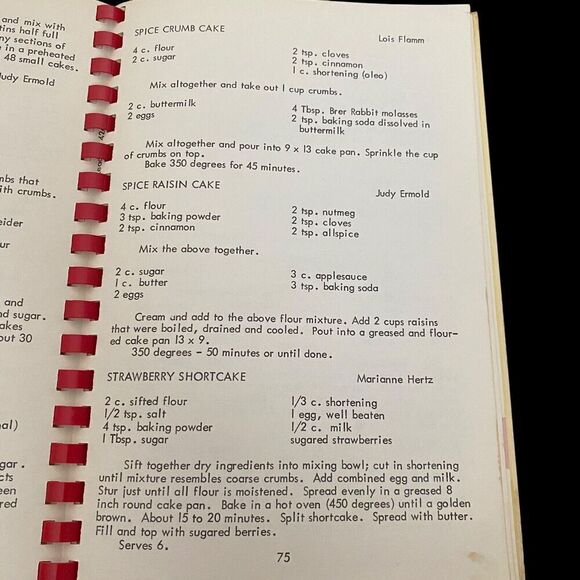 and mix with
tins half full
ny sections of
e in a preheated
48 small cakes.
Judy Ermold
mbs that
ith crumbs.
eider
ur
and
nd sugar.
akes
out 30
nal)
gar.
cts
een
red
SPICE CRUMB CAKE Lois Flamm
4 c. flour 2 tsp. cloves
2 c. sugar 2 tsp. cinnamon
1 c. shortening (oleo)
Mix altogether and take out 1 cup crumbs.
2 c. buttermilk 4 Tbsp. Brer Rabbit molasses
2 eggs 2 tsp. baking soda dissolved in
buttermilk
Mix altogether and pour into 9 x 13 cake pan. Sprinkle the cup
of crumbs on top.
Bake 350 degrees for 45 minutes.
SPICE RAISIN CAKE Judy Ermold
4 c. flour 2 tsp. nutmeg
3 tsp. baking powder 2 tsp. cloves
2 tsp. cinnamon 2 tsp. allspice
Mix the above together.
2 c. sugar 3 c. applesauce
1 c. butter 3 tsp. baking soda
2 eggs
Cream and add to the above flour mixture. Add 2 cups raisins
that were boiled, drained and cooled. Pout into a greased and flour-
ed cake pan 13 x 9.
350 degrees - 50 minutes or until done.
STRAWBERRY SHORTCAKE Marianne Hertz
2 c. sifted flour 1/3 c. shortening
1/2 tsp. salt 1 egg, well beaten
4 tsp. baking powder 1/2 c. milk
1 Tbsp. sugar sugared strawberries
Sift together dry ingredients into mixing bowl; cut in shortening
until mixture resembles coarse crumbs. Add combined egg and milk.
Stur just until all flour is moistened. Spread evenly in a greased 8
inch round cake pan. Bake in a hot oven (450 degrees) until a golden
brown. About 15 to 20 minutes. Split shortcake. Spread with butter.
Fill and top with sugared berries.
Serves 6.
75